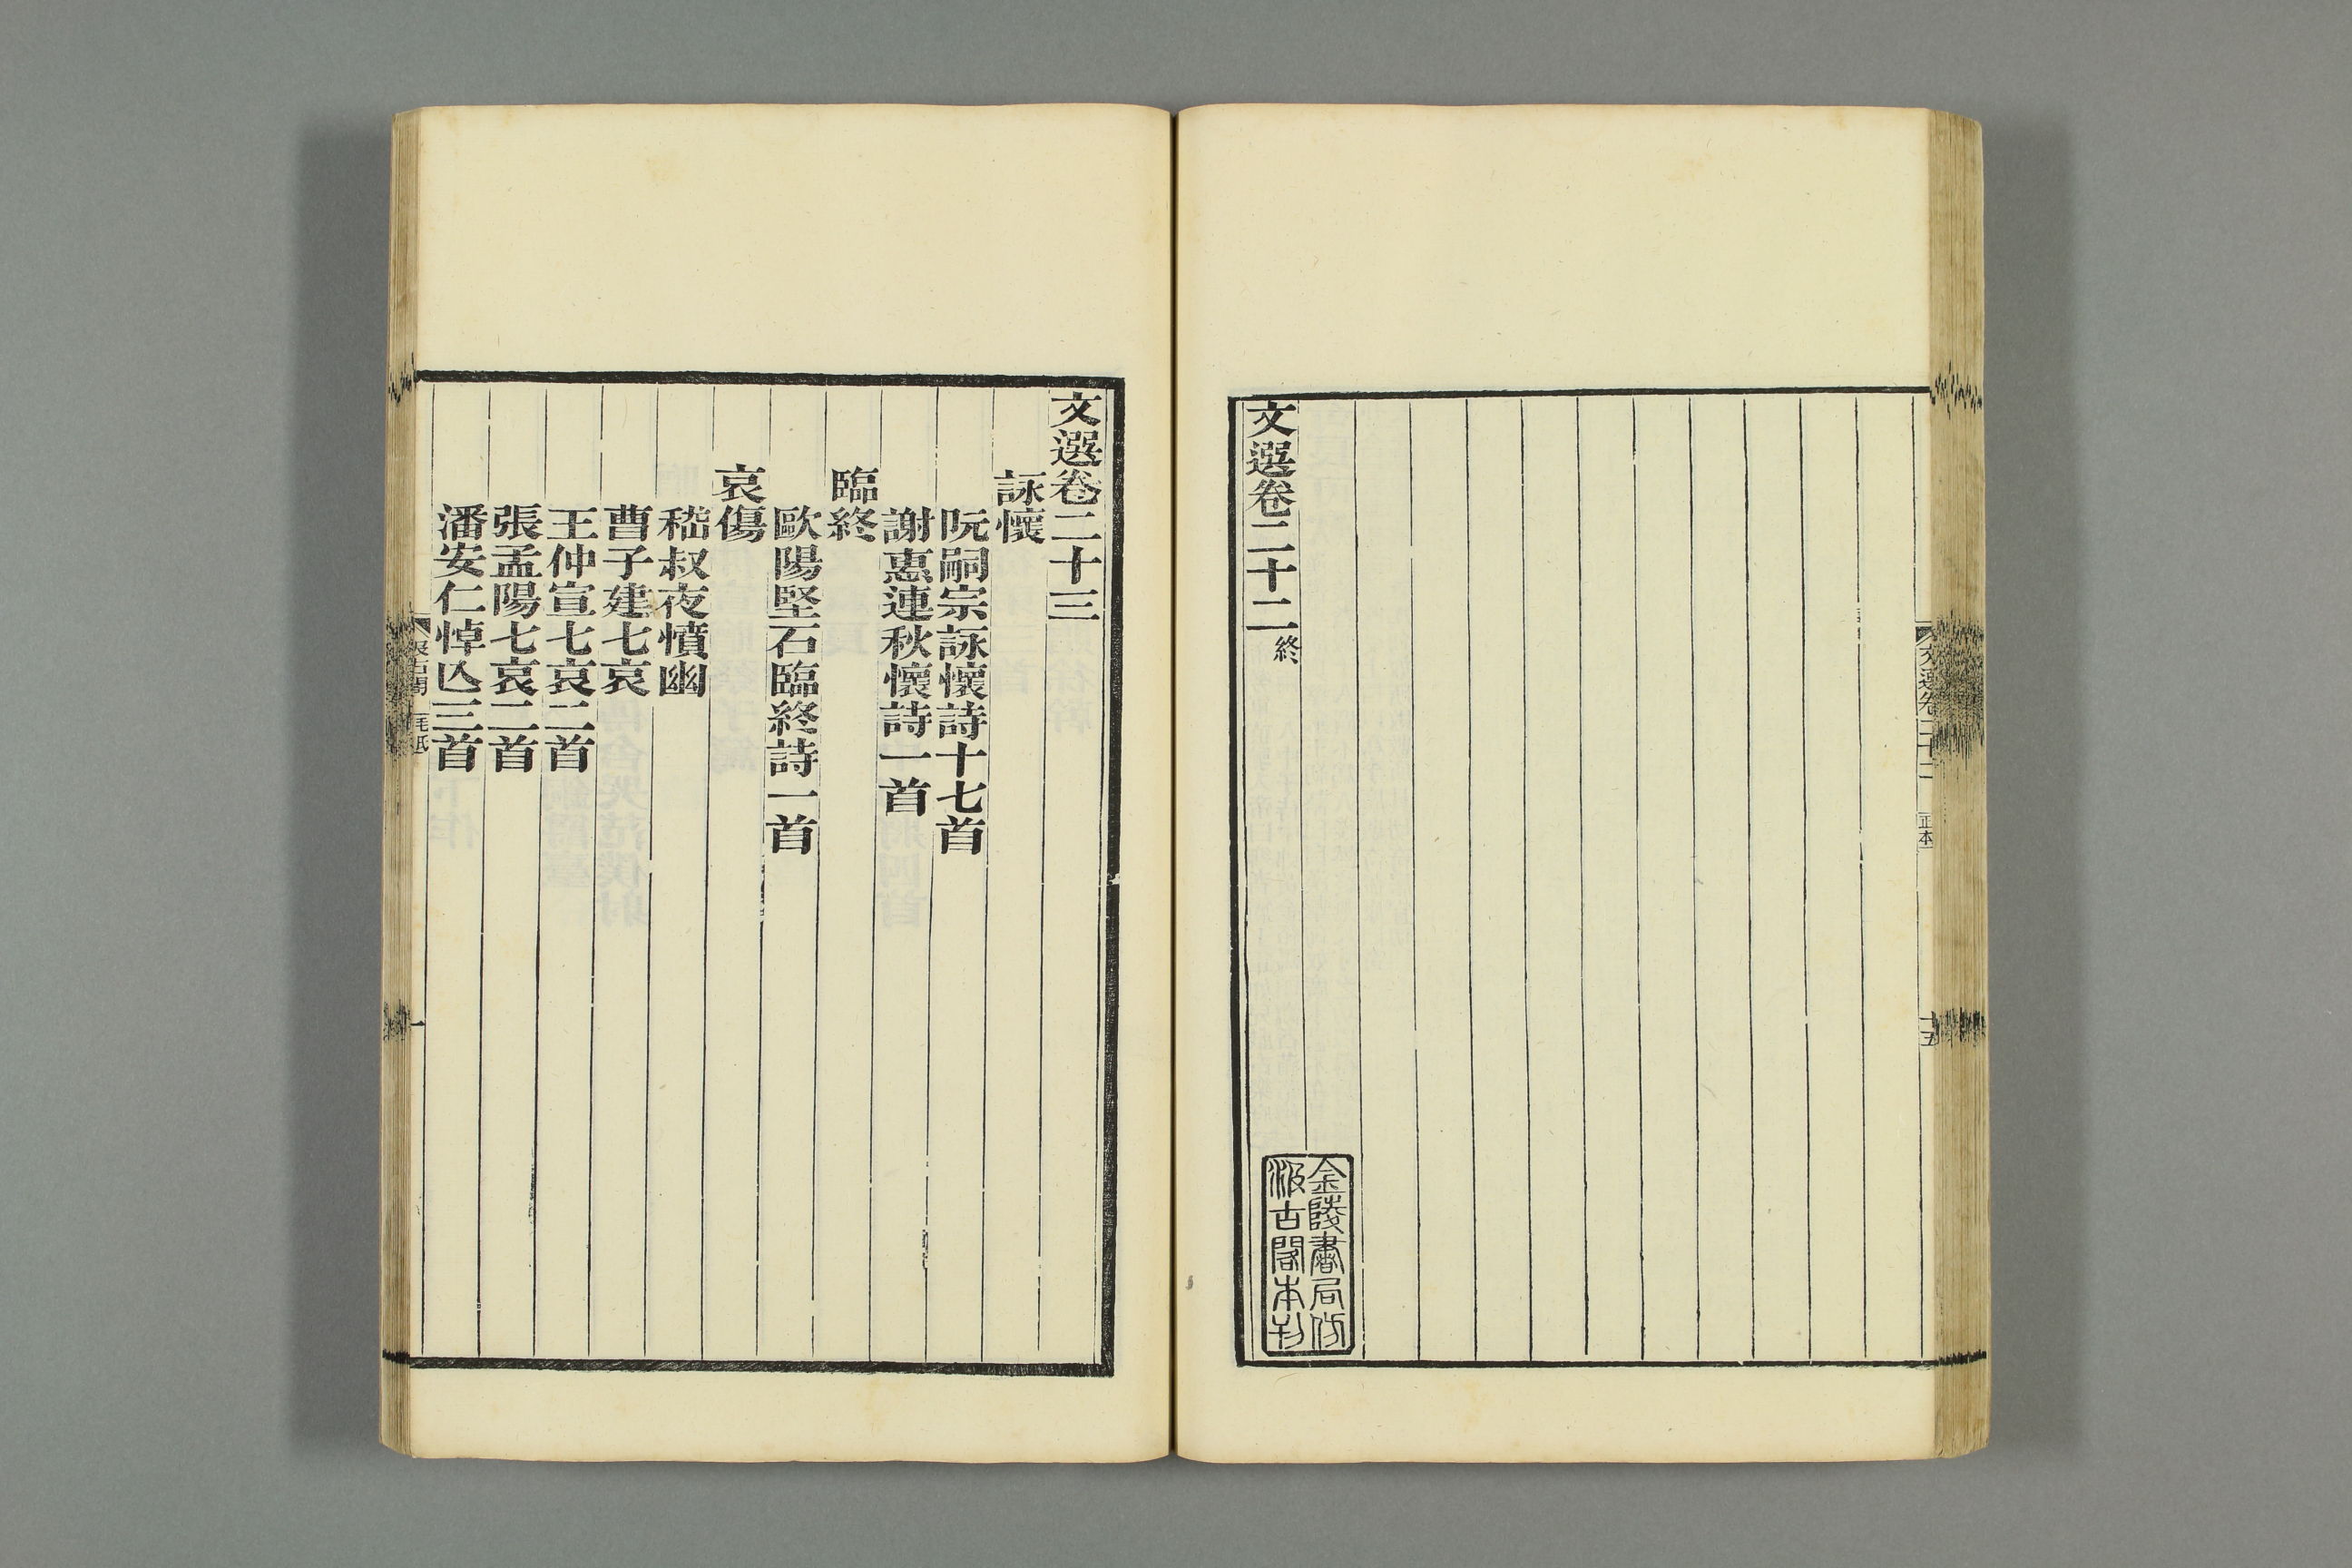 文選卷二十二
十五
文選卷二十二終
金陵書局仿
汲古閣本刊
文選卷二十三
詠懷
阮嗣宗詠懷詩十七首
謝惠連秋懷詩一首
臨終
歐陽堅石臨終詩一首
哀傷
嵇叔夜憤幽
曹子建七哀
王仲宣七哀二首
張孟陽七哀二首
潘安仁悼亾三首
一